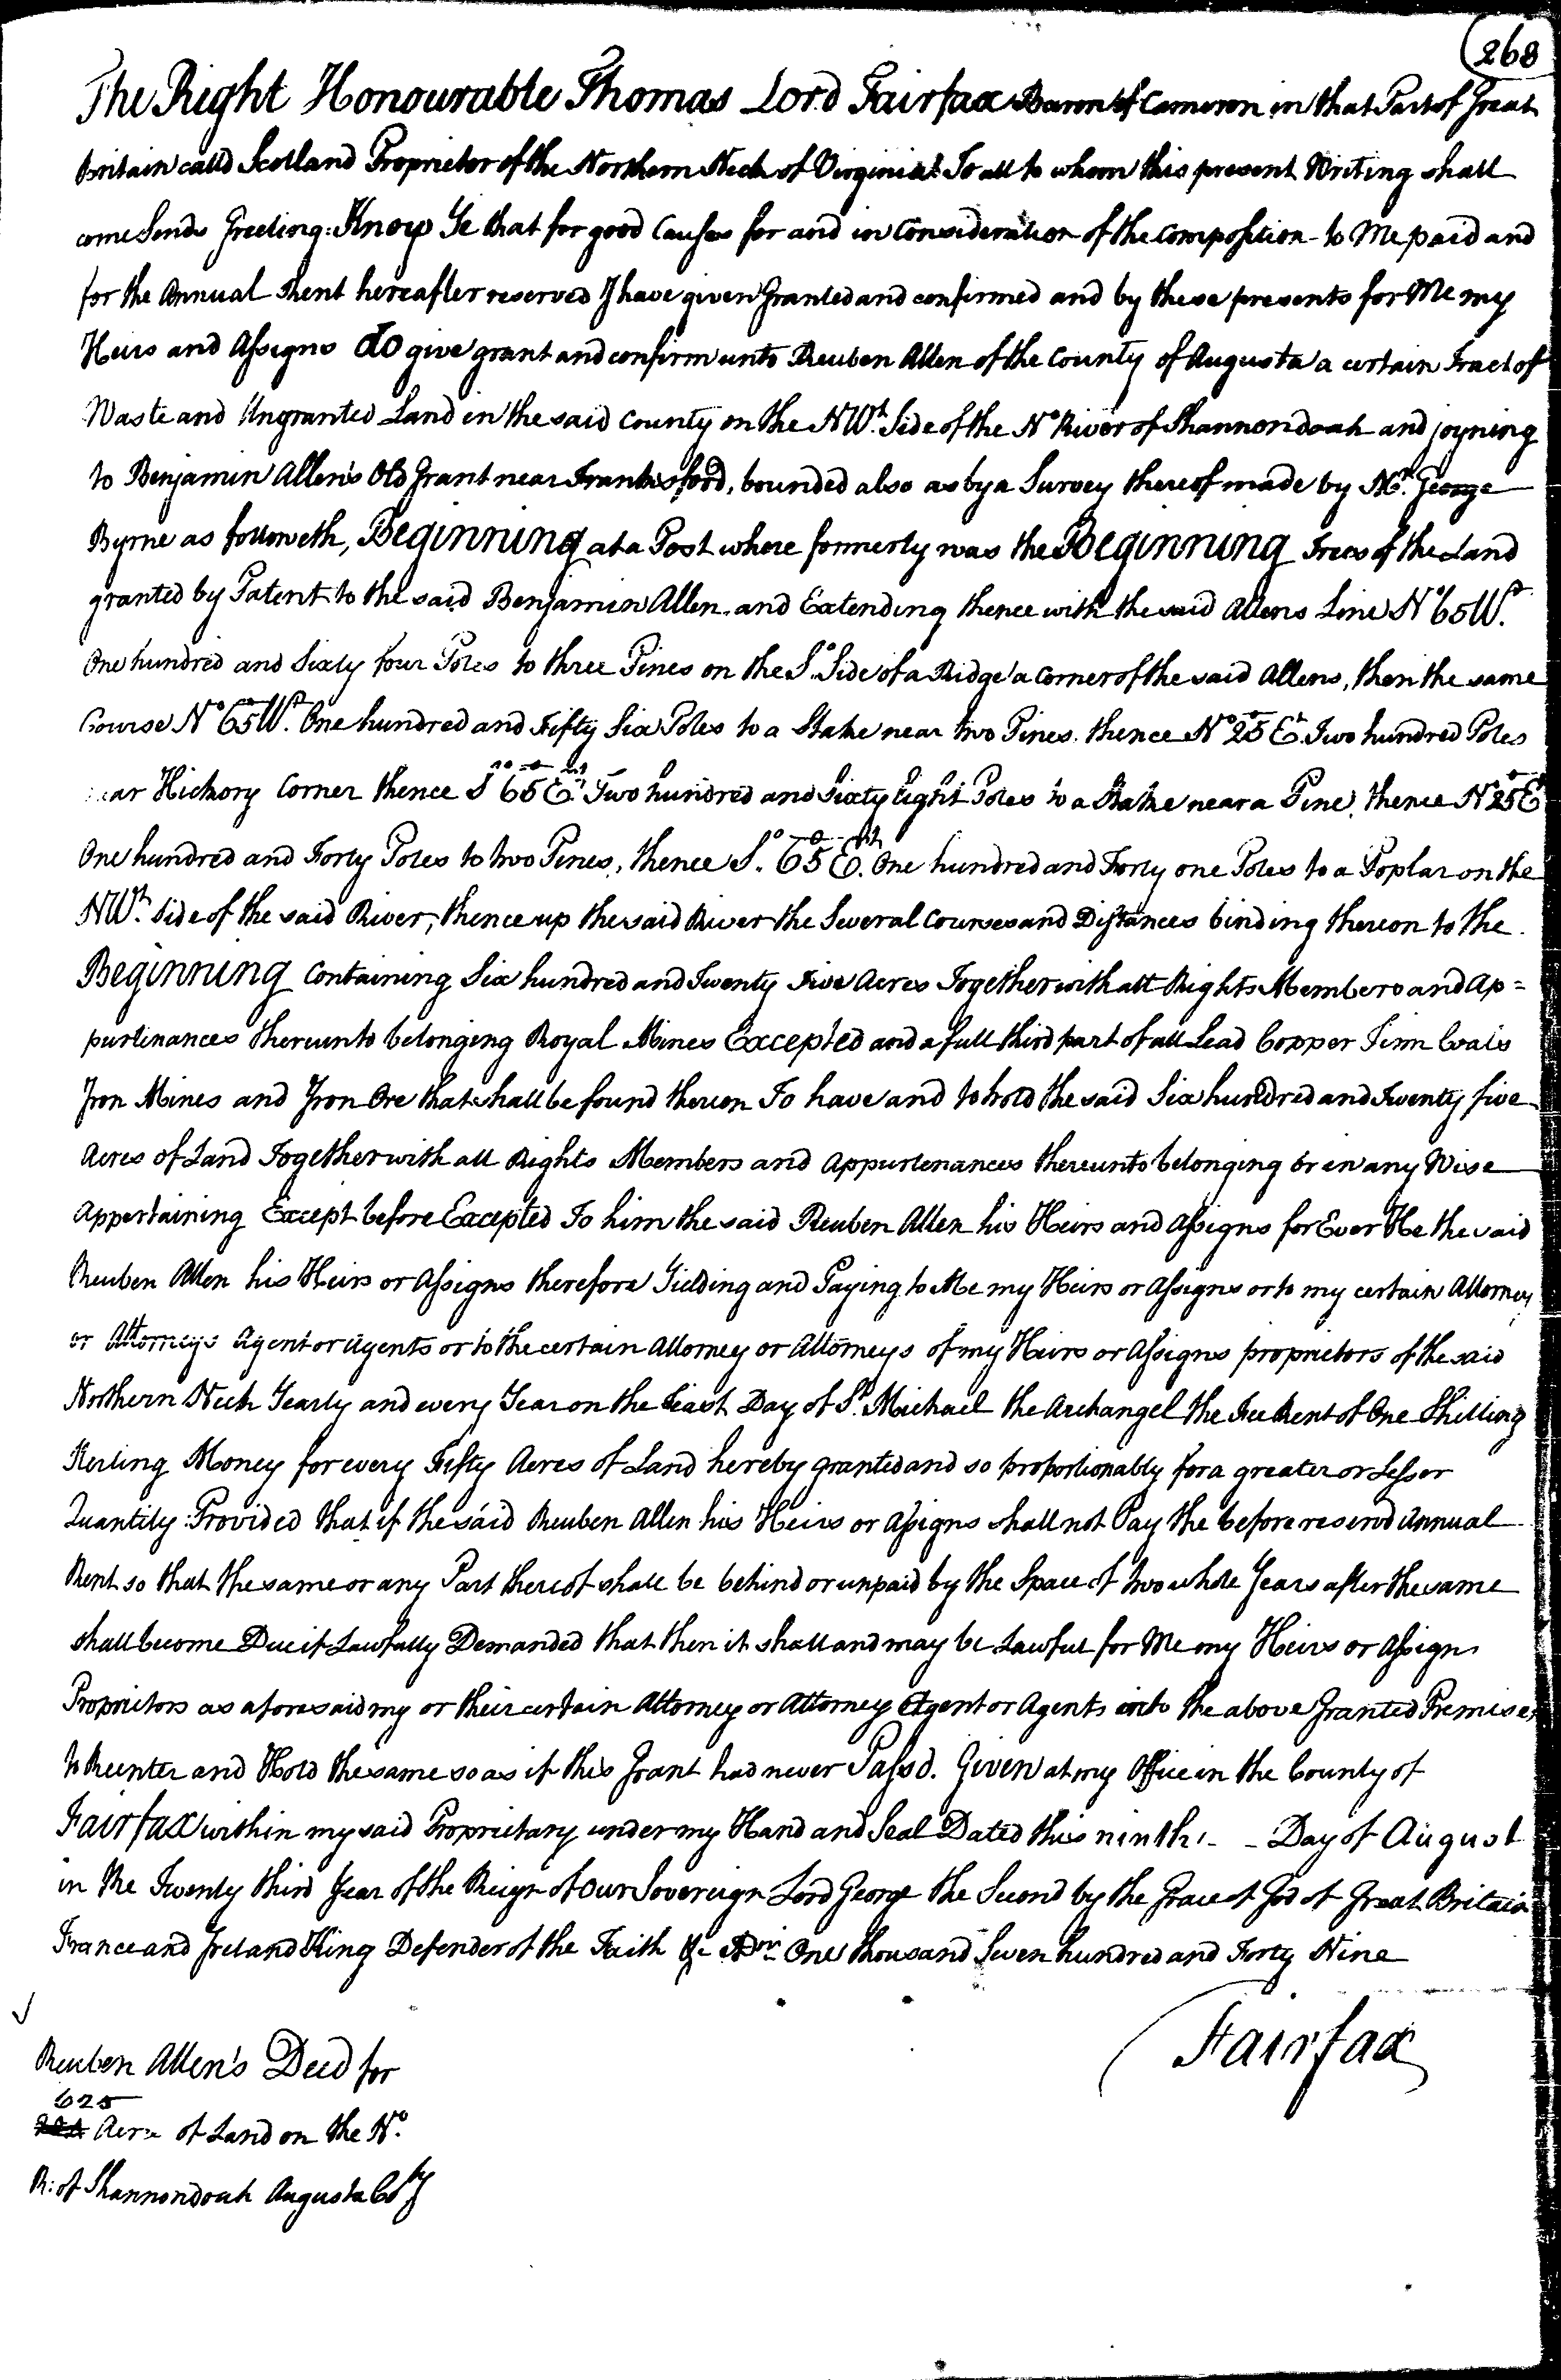 268
The Right Honourable Thomas Lord Fairfax Baron of Cameron in that Part of Great
Britain calld Scotland Proprietor of the Northern Neck of Virginia: To all to whom this present Writing shall
come Sends Greeting: Know Ye that for good Causes for and in Consideration of the Composition to Me paid and
for the Annual Rent hereafter reserved I have given Granted and confirmed and by these presents for Me my
Heirs and Assigns do give grant and confirm unto Reuben Allen of the County of Augusta a certain Tract of
Waste and Ungranted Land in the said County on the NWt. Side of the No River of Shannondoah and joyning
to Benjamin Allen's Old Grant near Franksford, bounded also as by a Survey thereof made by Mr. George
Byrne as followeth, Beginning at a Post where formerly was the Beginning Trees of the Land
granted by Patent to the said Benjamin Allen, and Extending thence with the said Allens Line No 65 Wt.
One hundred and Sixty four Poles to three Pines on the So. Side of a Ridge a Corner of the said Allens, then the same
Course No 65 Wt. One hundred and Fifty Six Poles to a Stake near two Pines, thence No 25 Et. Two hundred Poles
near Hickory Corner thence So 65 Et. Two hundred and Sixty Eight Poles to a Stake near a Pine, thence No 25 Et
One hundred and Forty Poles to two Pines, thence So. 65 Et. One hundred and Forty one Poles to a Poplar on the
NWt. Side of the said River, thence up the said River the Several Courses and Distances binding thereon to the
Beginning Containing Six hundred and Twenty Five Acres Together with all Rights Members and Ap=
purtinances thereunto belonging Royal Mines Excepted and a full third part of all Lead Copper Tinn Coals
Iron Mines and Iron Ore that shall be found thereon To have and to hold the said Six hundred and Twenty five
Acres of Land Together with all Rights Members and Appurtenances thereunto belonging or in any Wise
Appertaining Except before Excepted To him the said Reuben Allen his Heirs and Assigns for Ever He the said
Reuben Allen his Heirs or Assigns therefore Yielding and Paying to Me my Heirs or Assigns or to my certain Attorney
or Attorneys Agent or Agents or to the certain Attorney or Attorneys of my Heirs or Assigns proprietors of the said
Northern Neck Yearly and every Year on the Feast Day of St. Michael the Archangel the Fee Rent of One Shilling
Sterling Money for every Fifty Acres of Land hereby granted and so proportionably for a greater or Lesser
Quantity: Provided that if the said Reuben Allen his Heirs or Assigns shall not Pay the before reservd Annual
Rent so that the same or any Part thereof shall be behind or unpaid by the Space of two whole Years after the same
shall become Due if Lawfully Demanded that then it shall and may be Lawful for Me my Heirs or Assigns
Proprietors as aforesaid my or their certain Attorney or Attorney Agent or Agents into the above Granted Premises
to Reenter and Hold the same so as if this Grant had never Passd. Given at my Office in the County of
Fairfax within my said Proprietary under my Hand and Seal Dated this ninth - - Day of August
in the Twenty third Year of the Reign of Our Sovereign Lord George the Second by the Grace of God of Great Britain
France and Ireland King Defender of the Faith &c ADm. One thousand Seven hundred and Forty Nine
Fairfax
Reuben Allen's Deed for
625
Acrs of Land on the No.
R: of Shannondoah Augusta Coty